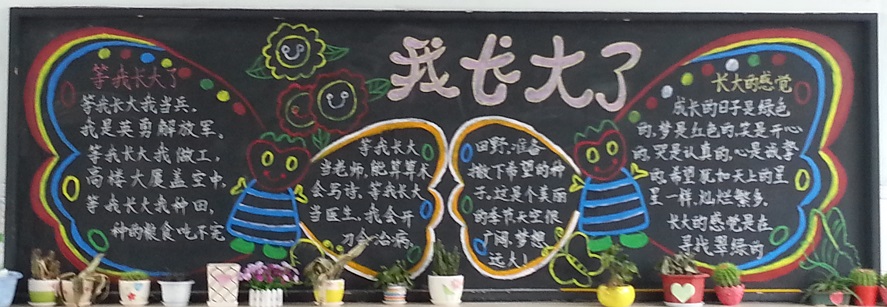 我长大了
等我长大了
等我长大我当兵,
我是英勇解放军。
等我长大我做工,
高楼大厦盖空中,
等我长大我种田,
种的粮食吃不完
等我长大
当老师,能算算术
会写诗,等我长大
当医生,我会开
刀会治病,
田野,准备
撒下希望的种
子,这是个美丽
的季节天空很
广阔,梦想
远大!
长大的感觉
成长的日子是绿色
的,梦是红色的,笑是开心
的,哭是认真的,心是诚挚
的,希望犹如天上的星
星一样,灿烂繁多,
长大的感觉是在
寻找翠绿的